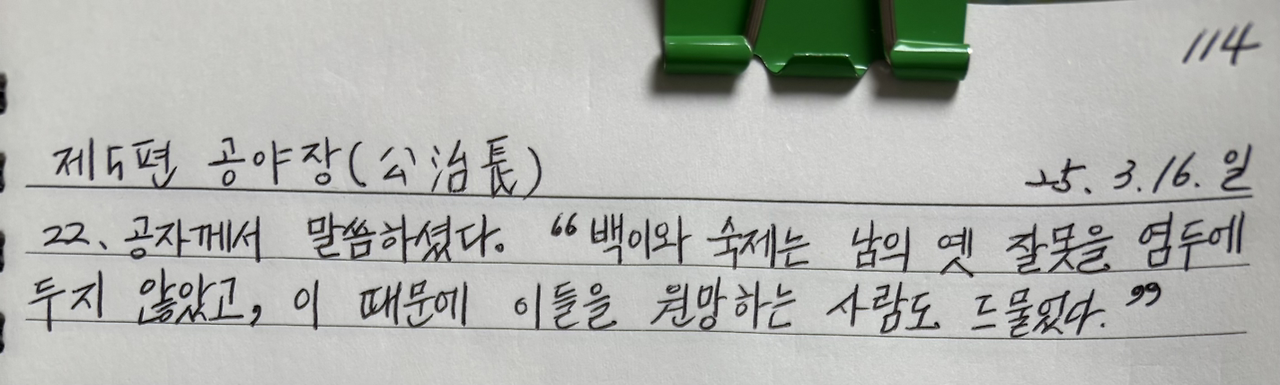 114
제5편 공야장(公治長) 25. 3. 16. 일
22. 공자께서 말씀하셨다. “백이와 숙제는 남의 옛 잘못을 염두에
두지 않았고, 이 때문에 이들을 원망하는 사람도 드물었다.”